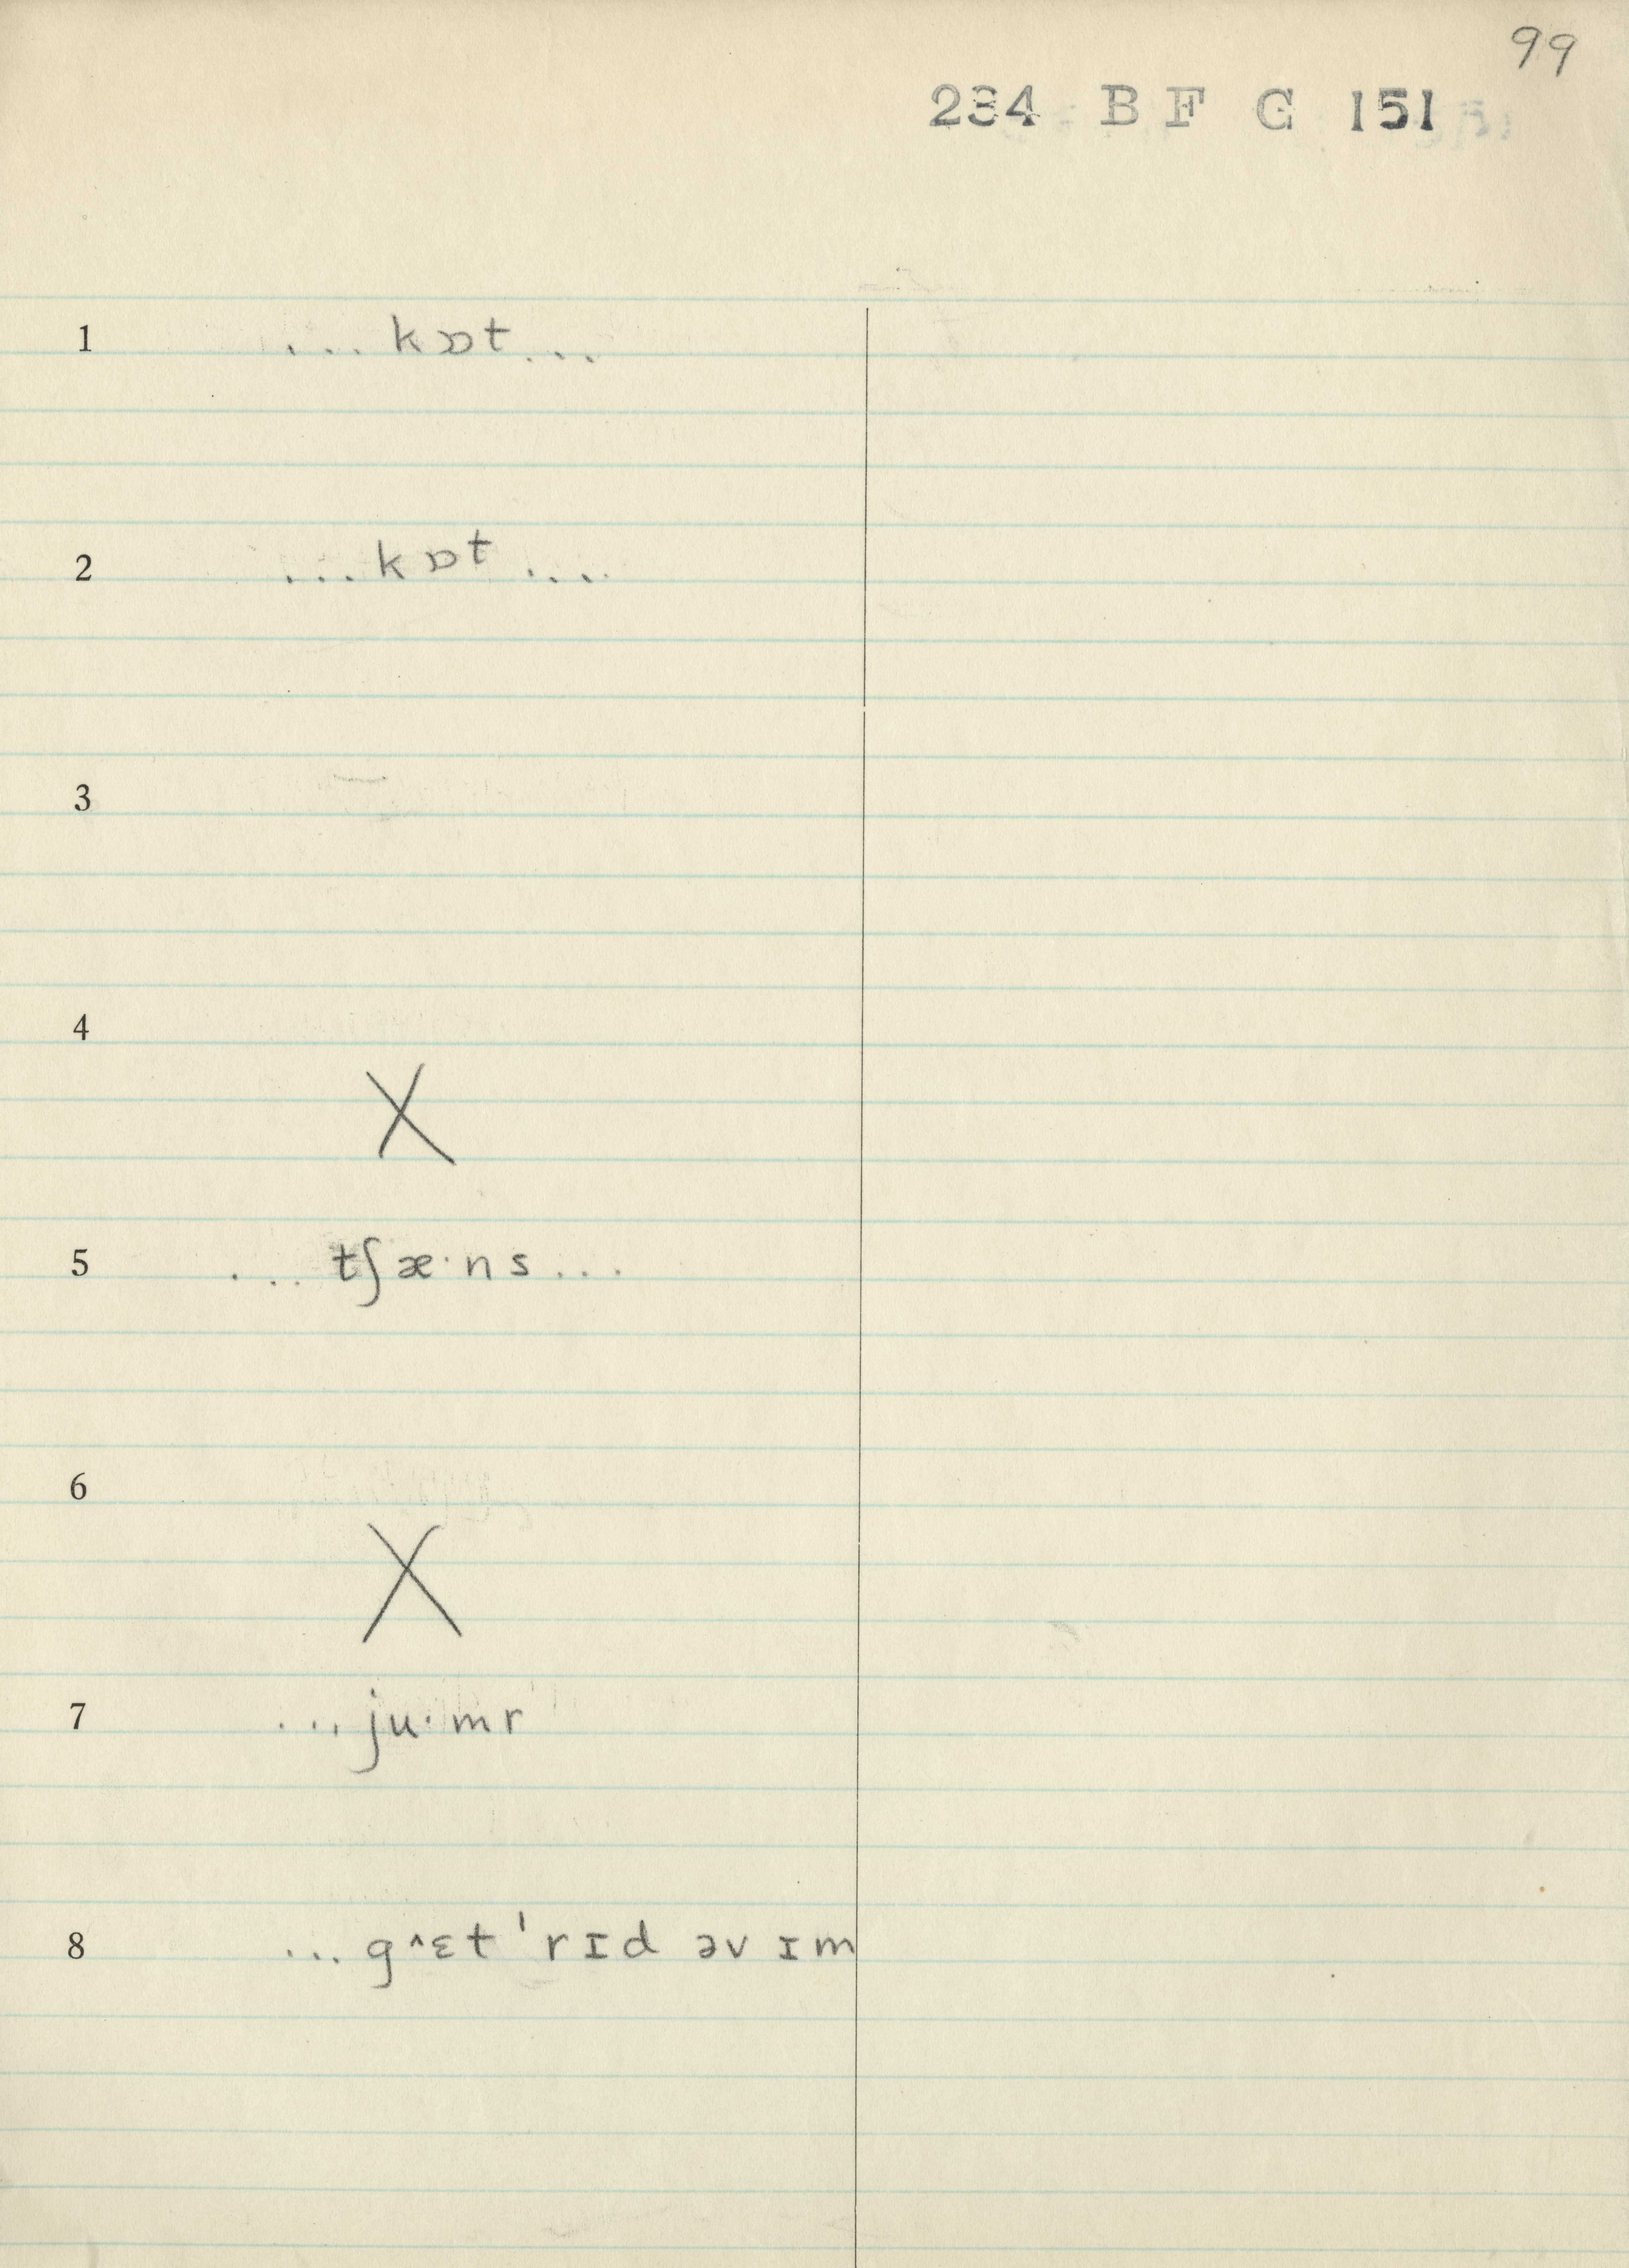 99
234 B F G 151
1 ...kɒt...
2 ...kɒt....
3
4
X
5 ...tʃæ·ns...
6
X
7 ...ju·mr
8 ...g^ɛt 'rɪd əv ɪm